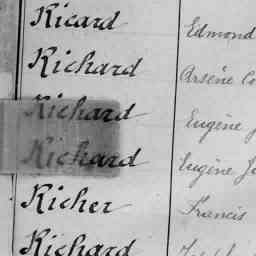 Ricard Edmond
Richard Arsène
Richard Eugène
Richard Eugène
Richer Francis
Richard